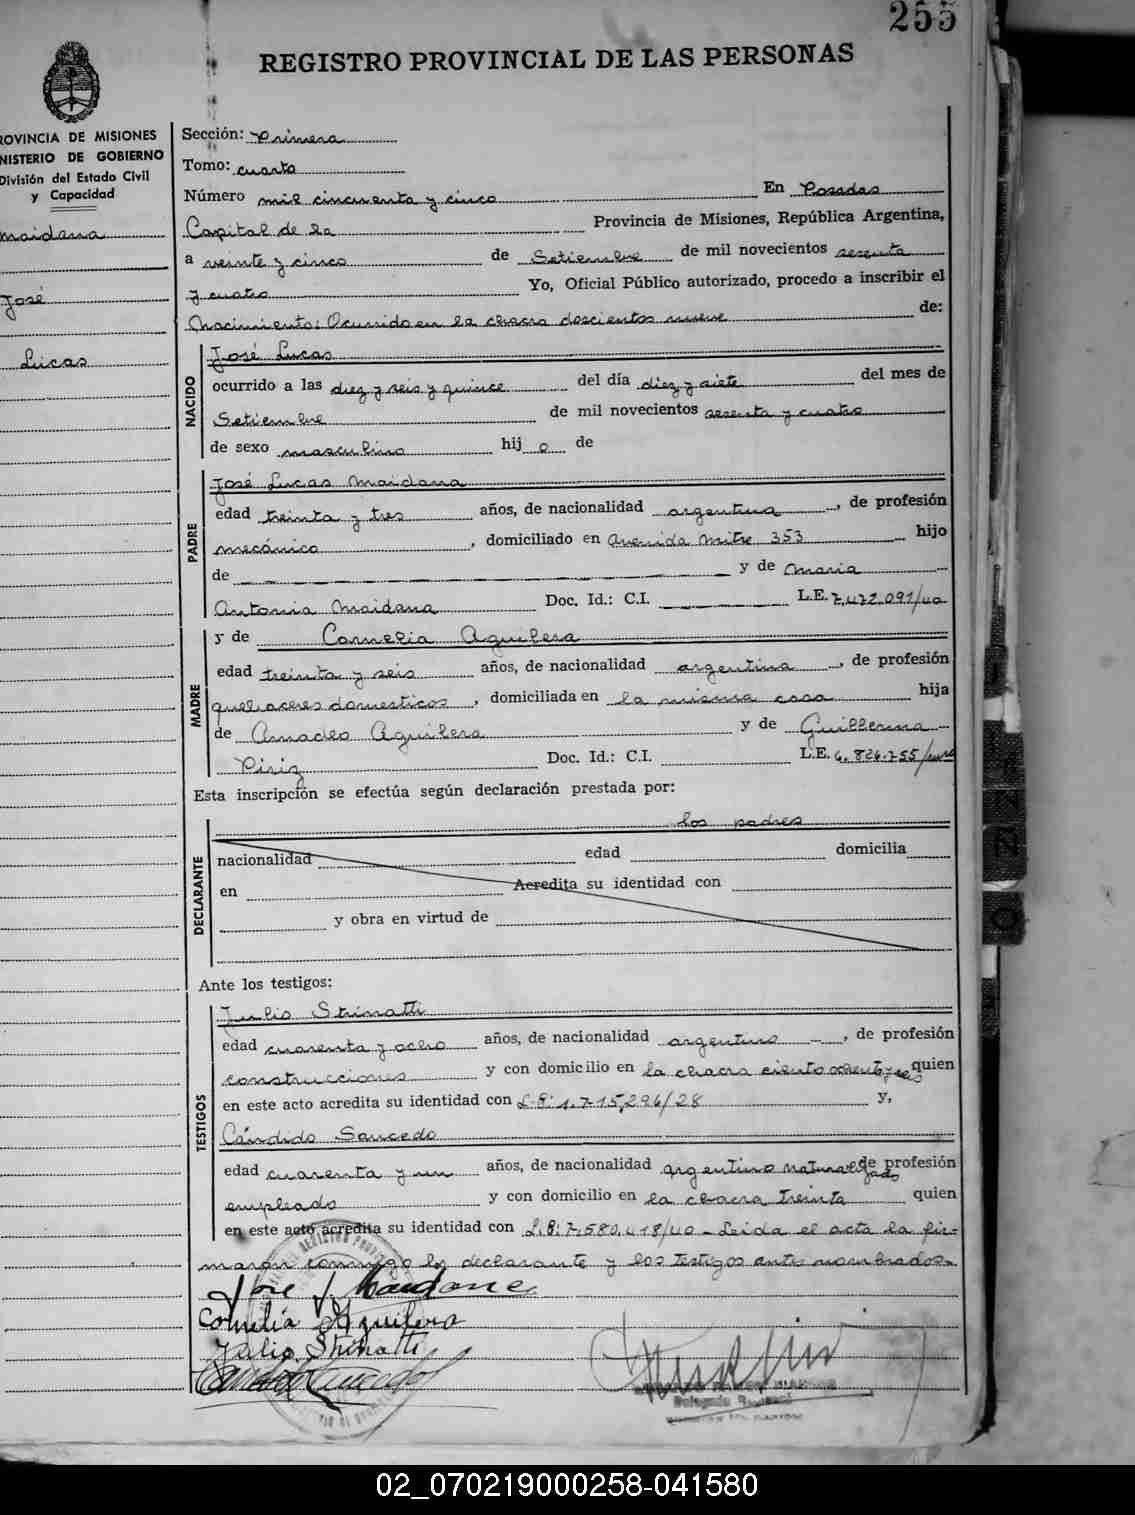 255
REGISTRO PROVINCIAL DE LAS PERSONAS
ROVINCIA DE MISIONES
NISTERIO DE GOBIERNO
División del Estado Civil
y Capacidad
maidana
José
Lucas
Sección: Primera
Tomo: cuarto
Número mil cincuenta y cinco En Posadas
Capital de la Provincia de Misiones, República Argentina,
a veinte y cinco de Setiembre de mil novecientos sesenta
y cuatro Yo, Oficial Público autorizado, procedo a inscribir el
Nacimiento: Ocurrido en la chacra doscientos nueve de:
NACIDO
José Lucas
ocurrido a las diez y seis y quince del día diez y siete del mes de
Setiembre de mil novecientos sesenta y cuatro
de sexo masculino hij o de
PADRE
José Lucas Maidana
edad treinta y tres años, de nacionalidad argentina, de profesión
mecánico, domiciliado en Avenida Mitre 353 hijo
de y de Maria
Antonia Maidana Doc. Id.: C.I. L.E. 7.472.091/40
MADRE
y de Cornelia Aguilera
edad treinta y seis años, de nacionalidad argentina, de profesión
quehaceres domesticos, domiciliada en la misma casa hija
de Amadeo Aguilera y de Guillerma
Piriz Doc. Id.: C.I. L.E. 6.824.755
Esta inscripción se efectúa según declaración prestada por:
DECLARANTE
los padres
nacionalidad edad domicilia
en Acredita su identidad con
y obra en virtud de
Ante los testigos:
TESTIGOS
Julio Strinatti
edad cuarenta y ocho años, de nacionalidad argentino, de profesión
construcciones y con domicilio en la chacra ciento quien
en este acto acredita su identidad con L.E: 1.715.296/28 y,
Cándido Saucedo
edad cuarenta y un años, de nacionalidad argentino de profesión
empleado y con domicilio en la chacra treinta quien
en este acto acredita su identidad con L.E: 7.580.418/40 - Leida el acta la fir-
maron conmigo los declarante y los testigos antes nombrados.
José L Maidana
Cornelia Aguilera
Julio Strinatti
02_070219000258-041580